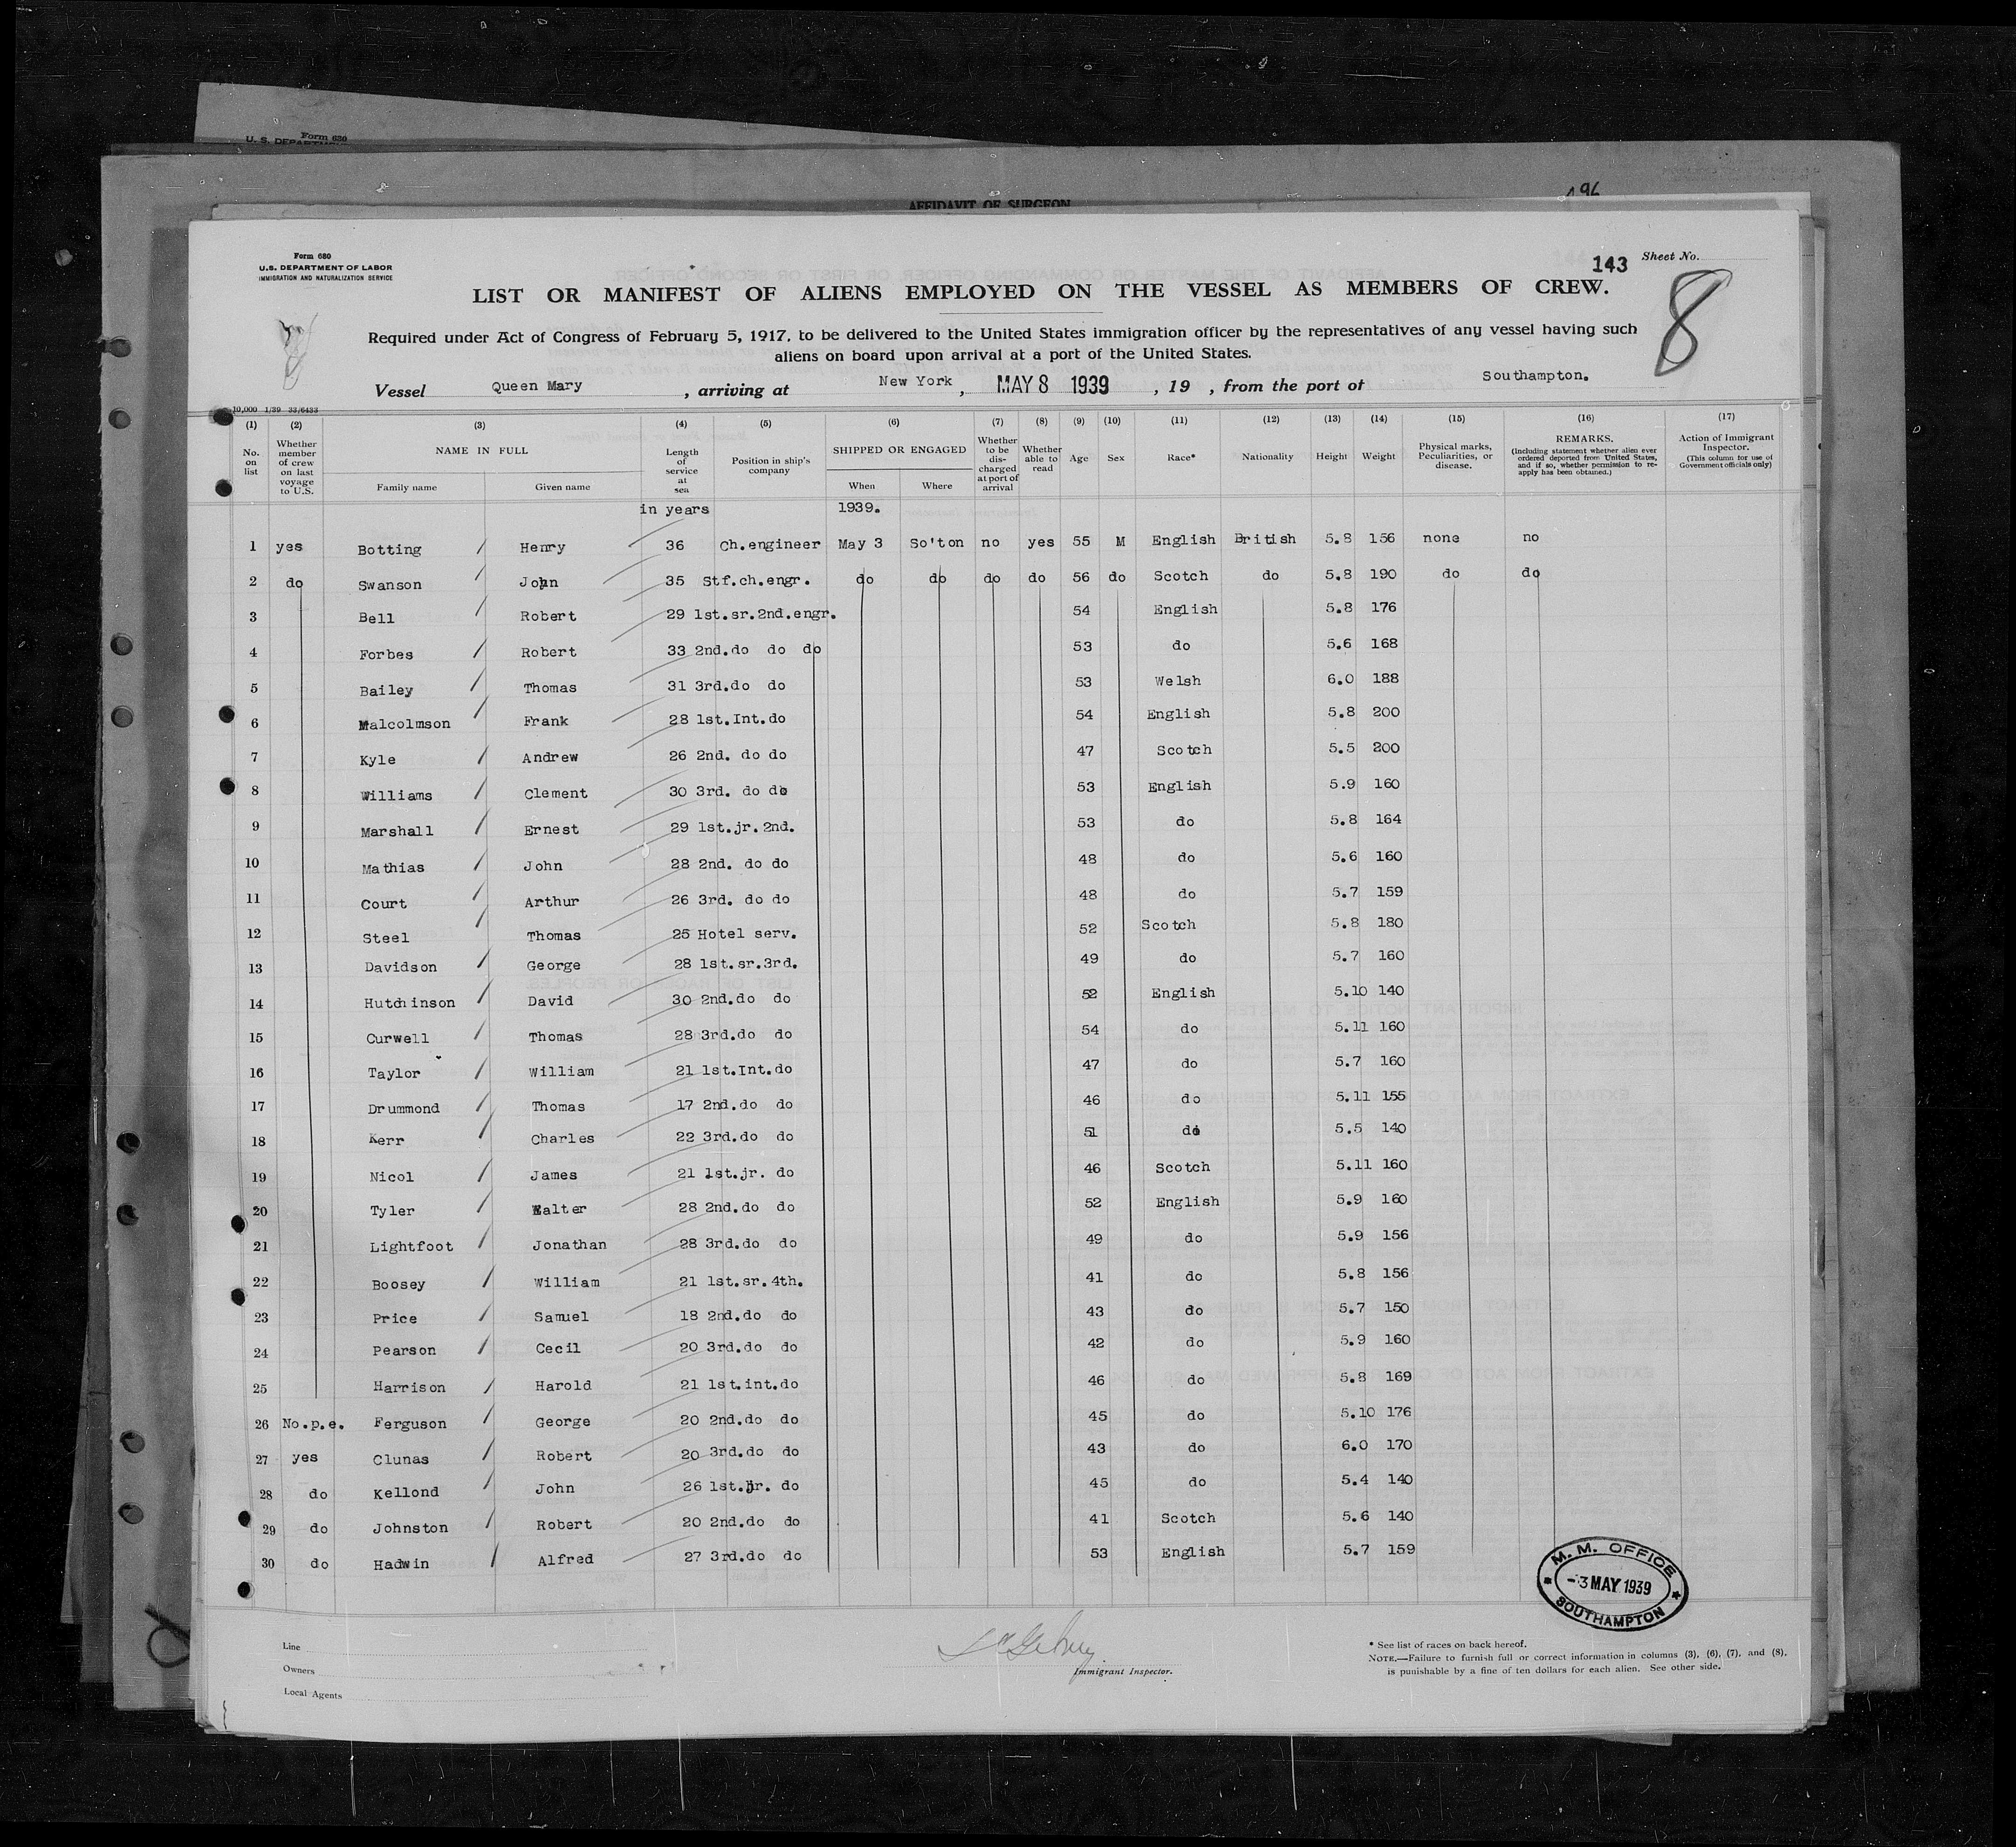 Form 680
U. S. DEPARTMENT
AFFIDAVIT OF SURGEON
196
Form 680
U.S. DEPARTMENT OF LABOR
IMMIGRATION AND NATURALIZATION SERVICE
143 Sheet No.
8
LIST OR MANIFEST OF ALIENS EMPLOYED ON THE VESSEL AS MEMBERS OF CREW.
Required under Act of Congress of February 5, 1917, to be delivered to the United States immigration officer by the representatives of any vessel having such
aliens on board upon arrival at a port of the United States.
Vessel Queen Mary, arriving at New York, MAY 8 1939, 19 , from the port of Southampton.
10,000 1/39 33/6433
(1) (2) (3) (4) (5) (6) (7) (8) (9) (10) (11) (12) (13) (14) (15) (16) (17)
No. on list
Whether member of crew on last voyage to U.S.
NAME IN FULL
Family name Given name
Length of service at sea
Position in ship's company
SHIPPED OR ENGAGED
When Where
Whether to be discharged at port of arrival
Whether able to read
Age
Sex
Race*
Nationality
Height
Weight
Physical marks, Peculiarities, or disease.
REMARKS.
(Including statement whether alien ever ordered deported from United States, and if so, whether permission to reapply has been obtained.)
Action of Immigrant Inspector.
(This column for use of Government officials only)
in years 1939.
1 yes Botting Henry 36 Ch.engineer May 3 So'ton no yes 55 M English British 5.8 156 none no
2 do Swanson John 35 Stf.ch.engr. do do do do 56 do Scotch do 5.8 190 do do
3 Bell Robert 29 1st.sr.2nd.engr. 54 English 5.8 176
4 Forbes Robert 33 2nd.do do do 53 do 5.6 168
5 Bailey Thomas 31 3rd.do do 53 Welsh 6.0 188
6 Malcolmson Frank 28 1st.Int.do 54 English 5.8 200
7 Kyle Andrew 26 2nd. do do 47 Scotch 5.5 200
8 Williams Clement 30 3rd. do do 53 English 5.9 160
9 Marshall Ernest 29 1st.jr.2nd. 53 do 5.8 164
10 Mathias John 28 2nd. do do 48 do 5.6 160
11 Court Arthur 26 3rd. do do 48 do 5.7 159
12 Steel Thomas 25 Hotel serv. 52 Scotch 5.8 180
13 Davidson George 28 1st.sr.3rd. 49 do 5.7 160
14 Hutchinson David 30 2nd.do do 52 English 5.10 140
15 Curwell Thomas 28 3rd.do do 54 do 5.11 160
16 Taylor William 21 1st.Int.do 47 do 5.7 160
17 Drummond Thomas 17 2nd.do do 46 do 5.11 155
18 Kerr Charles 22 3rd.do do 51 do 5.5 140
19 Nicol James 21 1st.jr. do 46 Scotch 5.11 160
20 Tyler Walter 28 2nd.do do 52 English 5.9 160
21 Lightfoot Jonathan 28 3rd.do do 49 do 5.9 156
22 Boosey William 21 1st.sr.4th. 41 do 5.8 156
23 Price Samuel 18 2nd.do do 43 do 5.7 150
24 Pearson Cecil 20 3rd.do do 42 do 5.9 160
25 Harrison Harold 21 1st.int.do 46 do 5.8 169
26 No.p.e. Ferguson George 20 2nd.do do 45 do 5.10 176
27 yes Clunas Robert 20 3rd.do do 43 do 6.0 170
28 do Kellond John 26 1st.jr. do 45 do 5.4 140
29 do Johnston Robert 20 2nd.do do 41 Scotch 5.6 140
30 do Hadwin Alfred 27 3rd.do do 53 English 5.7 159
M. M. OFFICE
-3 MAY 1939
SOUTHAMPTON
Line
Owners
Local Agents
Immigrant Inspector.
* See list of races on back hereof.
NOTE.—Failure to furnish full or correct information in columns (3), (6), (7), and (8), is punishable by a fine of ten dollars for each alien. See other side.